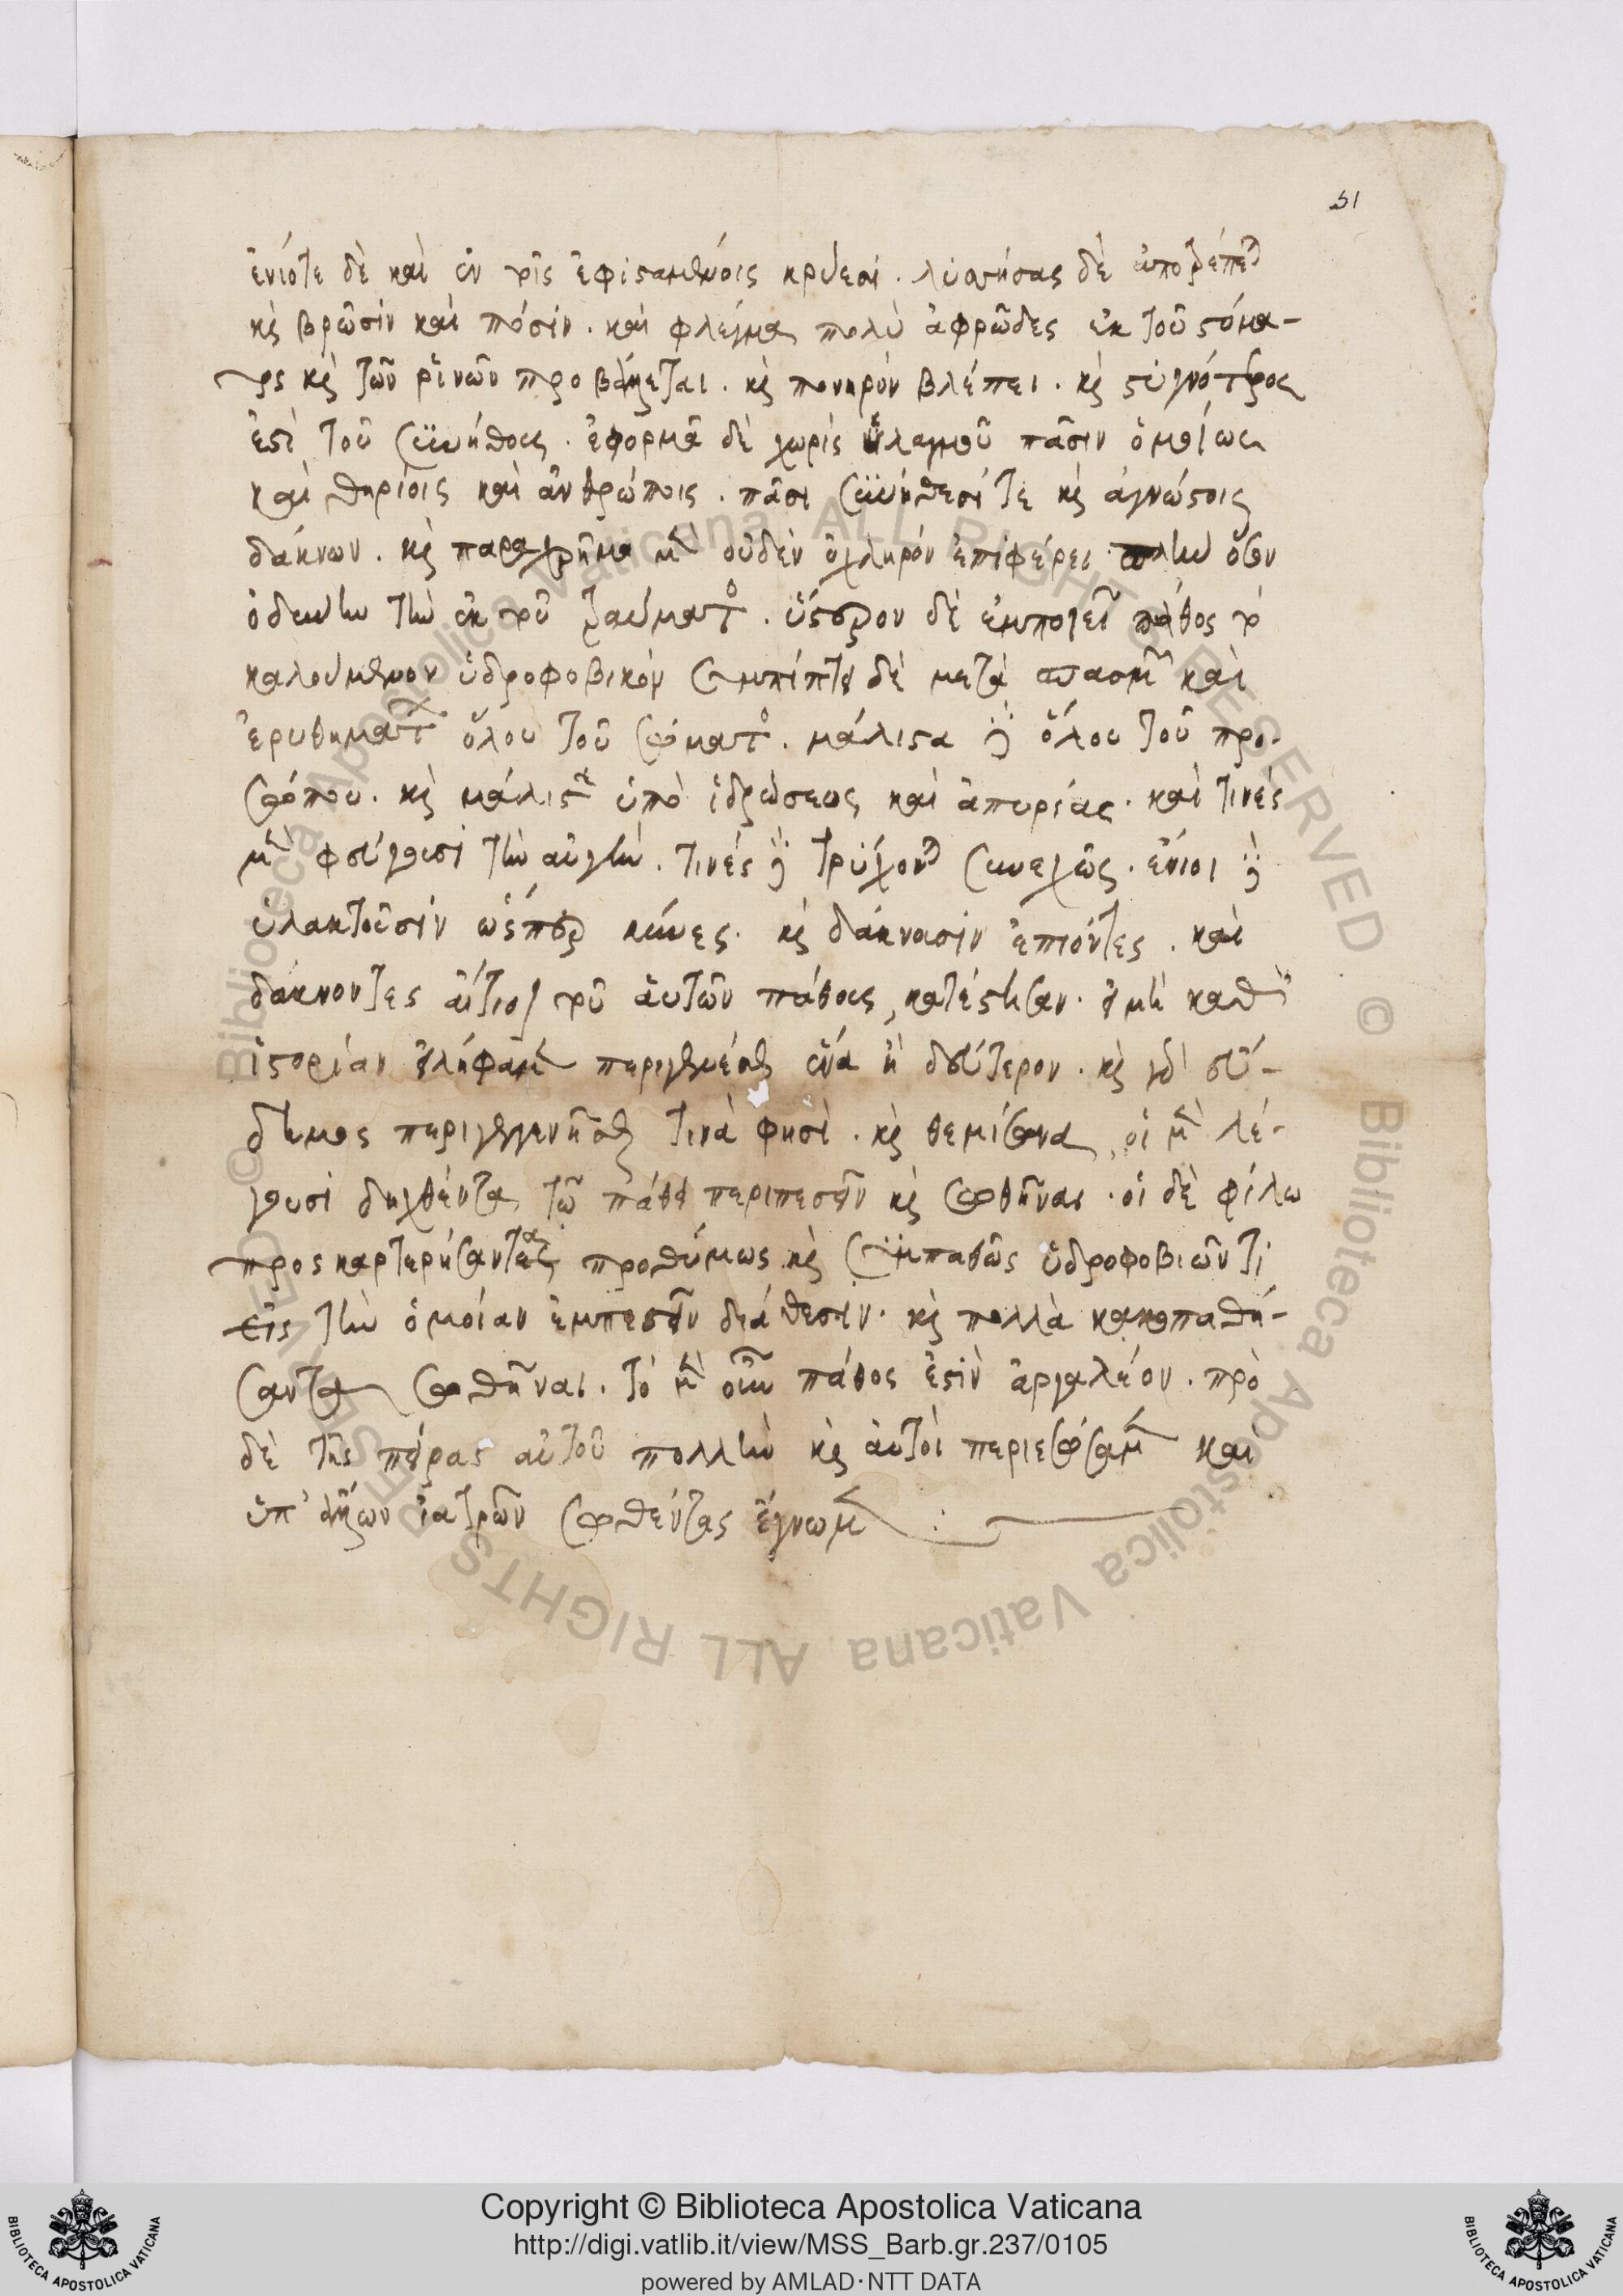 51
ἐνίοτε δὲ καὶ ἐν τοῖς ἐφισταμένοις κρύεσι. λυσσήσας δὲ ἀποτρέπεται
καὶ βρῶσιν καὶ πόσιν. καὶ φλέγμα πολὺ ἀφρῶδες ἐκ τοῦ στόμα-
τος καὶ τῶν ῥινῶν προβάλλεται. καὶ πονηρὸν βλέπει. καὶ στυγνότερος
ἐστὶ τοῦ συνήθους. ἐφορμᾶ δὲ χωρὶς ὑλαγμοῦ πᾶσιν ὁμοίως
καὶ θηρίοις καὶ ἀνθρώποις. πᾶσι συνήθεσί τε καὶ ἀγνώστοις
δάκνων. καὶ παραχρῆμα μὲν οὐδὲν ὀχληρὸν ἐπιφέρει πλὴν ὅσον
ὀδύνην τὴν ἐκ τοῦ τραύματος. ὕστερον δὲ ἐμποιεῖ πάθος τὸ
καλούμενον ὑδροφοβικόν συμπίπτει δὲ μετὰ σπασμῶν καὶ
ἐρυθήματος ὅλου τοῦ σώματος. μάλιστα δὲ ὅλου τοῦ προ-
σώπου. καὶ μάλιστα ὑπὸ ἱδρώσεως καὶ ἀπορίας. καὶ τινὲς
μὲν φεύγουσι τὴν αὐγὴν. τινὲς δὲ τρύχονται συνεχῶς. ἔνιοι δὲ
ὑλακτοῦσιν ὥσπερ κύνες. καὶ δάκνουσιν ἐπιόντες. καὶ
δάκνοντες αἴτιοι τοῦ αὐτῶν πάθους κατέστησαν. εἰ μὴ καθ'
ἱστορίαν εἰλήφαμεν περιγενέσθαι ἕνα ἢ δεύτερον. καὶ γὰρ εὔ-
δημος περιγεγενῆσθαι τινὰ φησὶ. καὶ θεμίσωνα, οἱ μὲν λέ-
γουσι δηχθέντα τῷ πάθει περιπεσεῖν καὶ σωθῆναι. οἱ δὲ φίλω
προσκαρτερήσαντα προθύμως καὶ συμπαθῶς ὑδροφοβιῶντι
εἰς τὴν ὁμοίαν ἐμπεσεῖν διάθεσιν. καὶ πολλὰ κακοπαθή-
σαντα σωθῆναι. τὸ μὲν οὖν πάθος ἐστὶν ἀργαλέον. πρὸ
δὲ τῆς πείρας αὐτοῦ πολλὴν καὶ αὐτοὶ περιεσώσαμεν καὶ
ὑπ' ἄλλων ἰατρῶν σωθέντας ἔγνωμεν
© Biblioteca Apostolica Vaticana ALL RIGHTS RESERVED
© Biblioteca Apostolica Vaticana ALL RIGHTS RESERVED
Copyright © Biblioteca Apostolica Vaticana
http://digi.vatlib.it/view/MSS_Barb.gr.237/0105
powered by AMLAD·NTT DATA
BIBLIOTECA APOSTOLICA VATICANA
BIBLIOTECA APOSTOLICA VATICANA